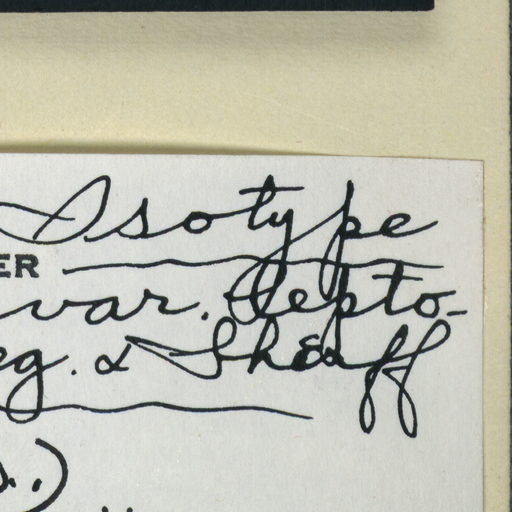 Isotype
ER
var. lepto-
eg. & Sherff
s.,)